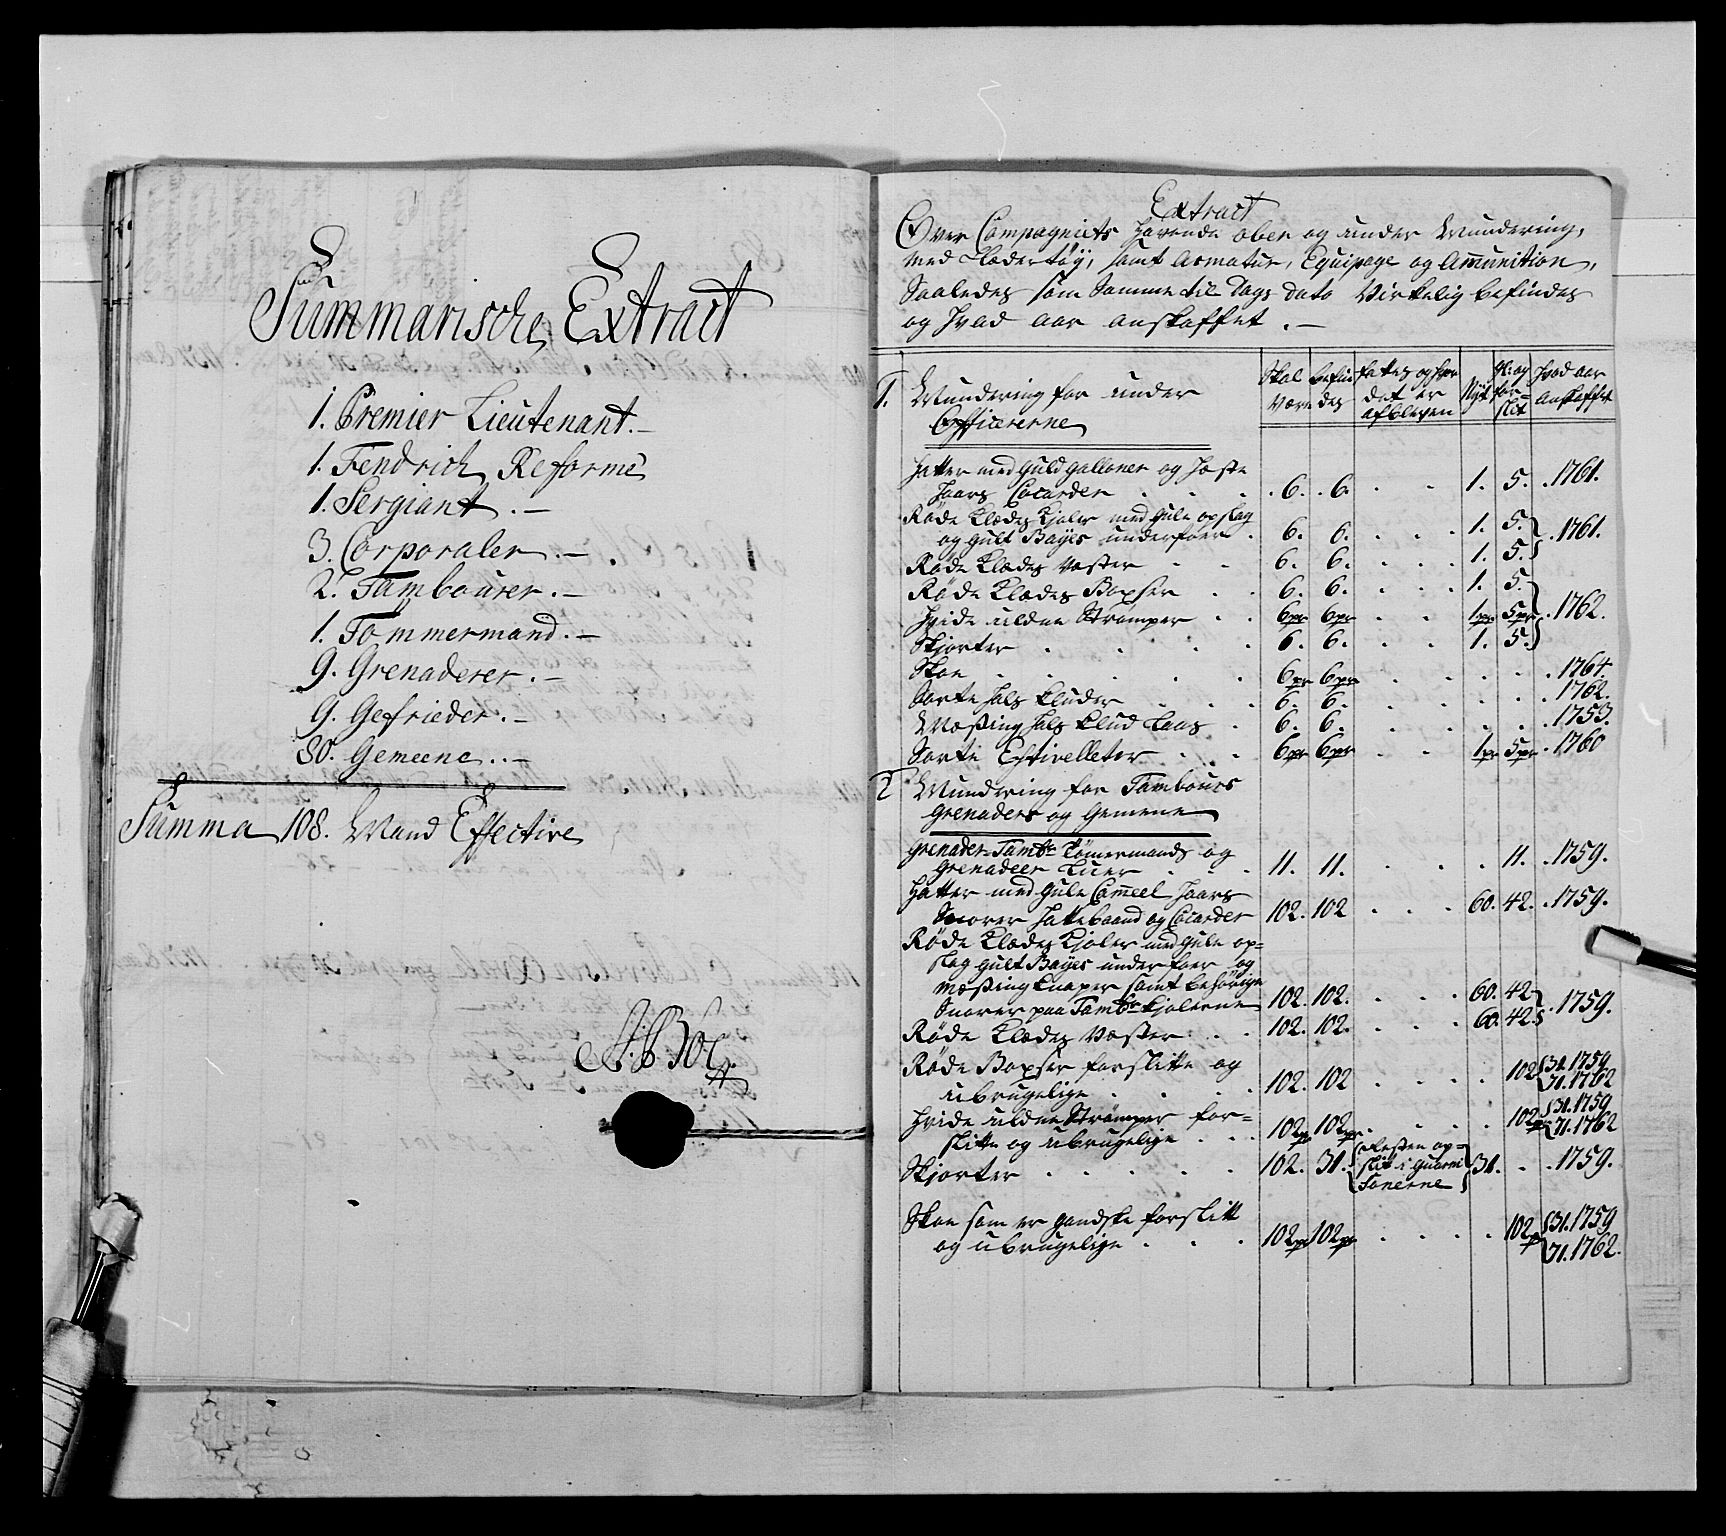 Summarische Extract
1. Premier Lieutenant.—
1. Fendrich Reformé
1. Sergiant.—
3. Corporaler.—
2. Tambourer.—
1. Tømmermand.—
9. Grenaderer.—
9. Gefrieder.—
80. Gemeene..—
Summa 108. Mand Effective
Extract
Over Compagniets havende ober og under Mundering,
med Læder tøy, samt Armatur, Equipage og Amunition,
Saaledes som Samme til Dags Dato Virkelig befindes
og hvad aar anskaffet.—
Skal Være | befindes | fattes og hvor det er afbleven | Nyt | forslit | hvad aar anskaffet
1. Mundering for under
Officererne
Hatter med Guld galloner og heste
haars Cocarder . . . 6. 6. . . 1. 5. 1761.
Røde Klædes Kjoler med Gule opslag
og Gult Bayes underfoer . 6. 6. . . 1. 5. } 1761.
Røde Klædes Vester . . 6. 6. . . 1. 5.
Røde Klædes Boxser . . 6. 6. . . 1. 5.
Hvide uldne Strømper . . 6pr 6pr . . 1pr 5pr } 1762.
Skjorter . . . . 6. 6. . . 1. 5.
Skoe . . . . 6pr 6pr . . . . 1764.
Sorte Hals Kluder . . . 6. 6. . . . . 1762.
Messing Hals Klud Laas . 6. 6. . . . . 1753.
Sorte Estivelletter . . . 6pr 6pr . . 1pr 5pr . 1760
2 Mundering for Tambours
Grenaders og Gemeene
Grenader-Tambr Tømermands og
Grenadeer Luer . . . 11. 11. . . . 11. 1759.
Hatter med Gule Cameel haars
Snorer Hattebaand og Cocarder 102. 102 . . 60. 42. 1759.
Røde Klædes Kjoler med Gule op=
slag Gult Bayes underfoer og
Messing Knaper samt behørige
Snorer paa Tambr Kjolerne 102. 102. . . 60. 42 } 1759.
Røde Klædes Vester . . 102. 102. . . 60. 42.
Røde Boxser forslitte og
ubrugelige . . . 102. 102 . . . 102 { 31. 1759
71. 1762
Hvide uldne Strømper for=
slitte og ubrugelige . . 102pr 102pr . . . 102pr { 31. 1759
71. 1762
Skjorter . . . . 102. 31. { Resten op=
slit i Guarni
Sonerne } 31. . . 1759.
Skoe som er gandske forslitt
og ubrugelige . . . 102pr 102pr . . . 102pr { 31. 1759
71. 1762.